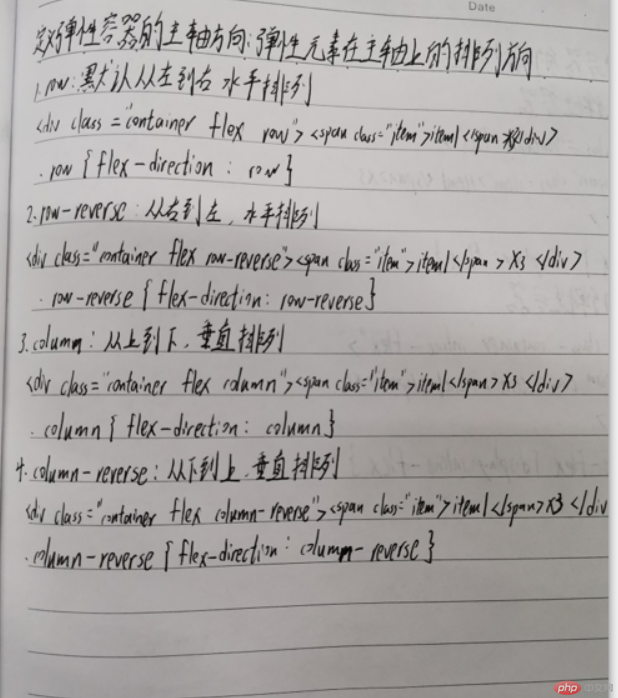 Date
定义弹性容器的主轴方向:弹性元素在主轴上的排列方向
1.row:默认从左到右 水平排列
<div class="container flex row"><span class="item">item1</span>X3</div>
.row{flex-direction: row}
2.row-reverse:从右到左,水平排列
<div class="container flex row-reverse"><span class="item">item1</span>X3 </div>
.row-reverse{flex-direction: row-reverse}
3.column:从上到下,垂直排列
<div class="container flex column"><span class="item">item1</span>X3 </div>
.column{flex-direction: column}
4.column-reverse:从下到上,垂直排列
<div class="container flex column-reverse"><span class="item">item1</span>X3 </div
.column-reverse{flex-direction: column-reverse}
php